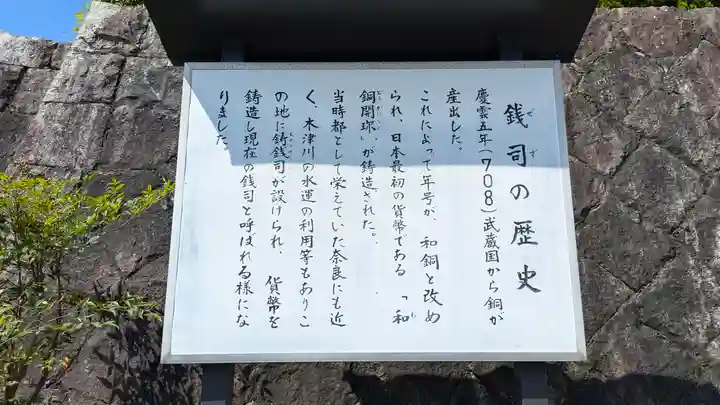 銭司の歴史
慶雲五年(708)武蔵国から銅が
産出した。
これによって年号が、和銅と改め
られ、日本最初の貨幣である「和
銅開珎」が鋳造された。
当時都として栄えていた奈良にも近
く、木津川の水運の利用等もありこ
の地に鋳銭司が設けられ、貨幣を
鋳造し現在の銭司と呼ばれる様にな
りました。